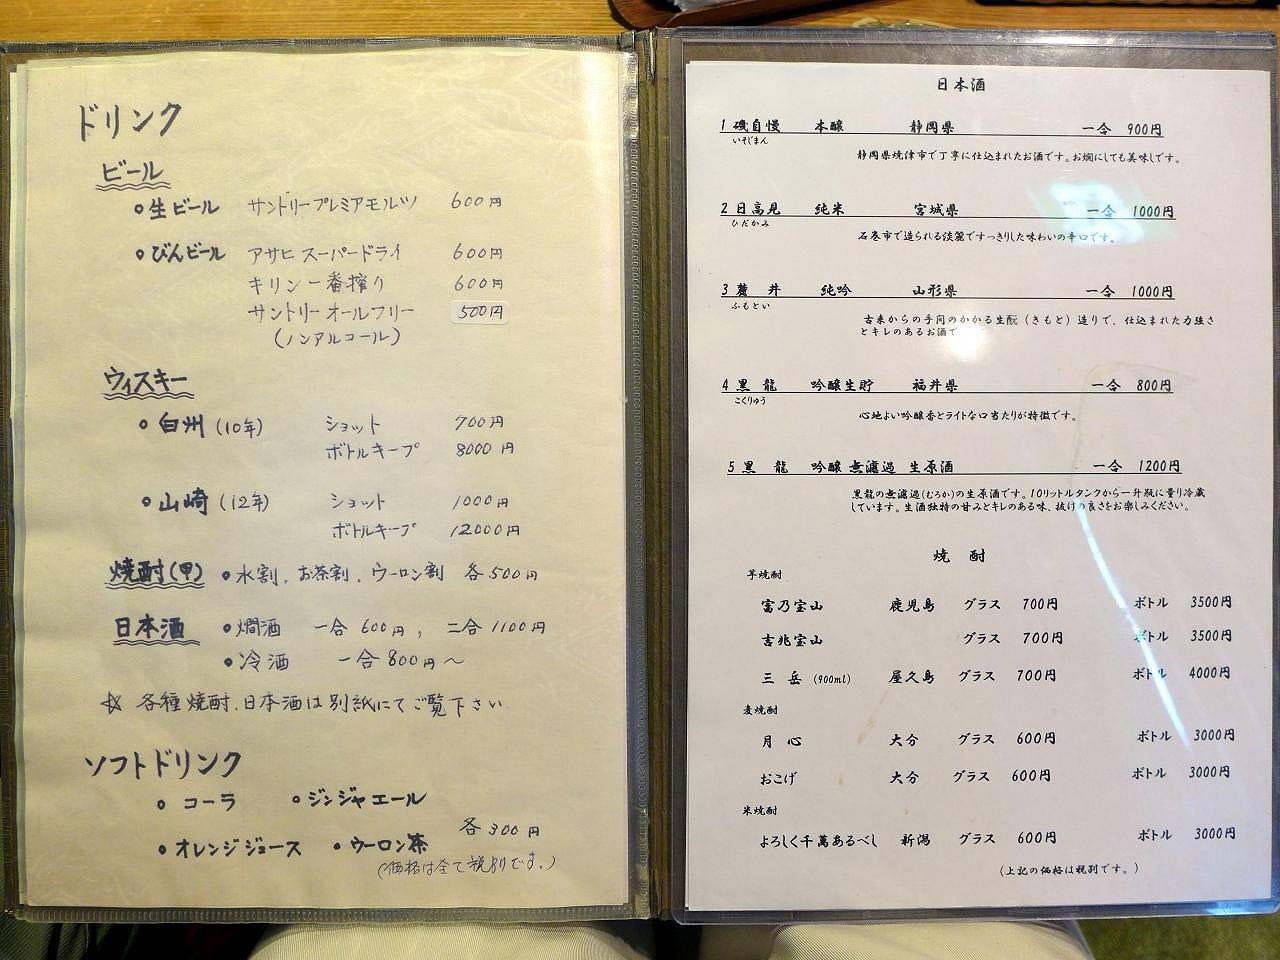 ドリンク
ビール
生ビール サントリープレミアモルツ 600円
びんビール アサヒスーパードライ 600円
キリン一番搾り 600円
サントリーオールフリー 500円
(ノンアルコール)
ウィスキー
白州(10年) ショット 700円
ボトルキープ 8000円
山崎(12年) ショット 1000円
ボトルキープ 12000円
焼酎(甲) 水割、お茶割、ウーロン割 各500円
日本酒 燗酒 一合 600円, 二合 1100円
冷酒 一合 800円〜
☆ 各種焼酎、日本酒は別紙にてご覧下さい
ソフトドリンク
コーラ ジンジャエール
オレンジジュース ウーロン茶 各300円
(価格は全て税別です。)
日本酒
1 磯自慢 本醸 静岡県 一合 900円
いそじまん
静岡県焼津市で丁寧に仕込まれたお酒です。お燗にしても美味しです。
2 日高見 純米 宮城県 一合 1000円
ひだかみ
石巻市で造られる淡麗ですっきりした味わいの辛口です。
3 麓 井 純吟 山形県 一合 1000円
ふもとい
古来からの手間のかかる生酛(きもと)造りで、仕込まれた力強さ
とキレのあるお酒で
4 黒 龍 吟醸生貯 福井県 一合 800円
こくりゅう
心地よい吟醸香とライトな口当たりが特徴です。
5 黒 龍 吟醸 無濾過 生原酒 一合 1200円
黒龍の無濾過(むろか)の生原酒です。10リットルタンクから一升瓶に量り冷蔵
しています。生酒独特の甘みとキレのある味、抜けの良さをお楽しみください。
焼 酎
芋焼酎
富乃宝山 鹿児島 グラス 700円 ボトル 3500円
吉兆宝山 グラス 700円 ボトル 3500円
三 岳 (900ml) 屋久島 グラス 700円 ボトル 4000円
麦焼酎
月 心 大分 グラス 600円 ボトル 3000円
おこげ 大分 グラス 600円 ボトル 3000円
米焼酎
よろしく千萬あるべし 新潟 グラス 600円 ボトル 3000円
(上記の価格は税別です。)